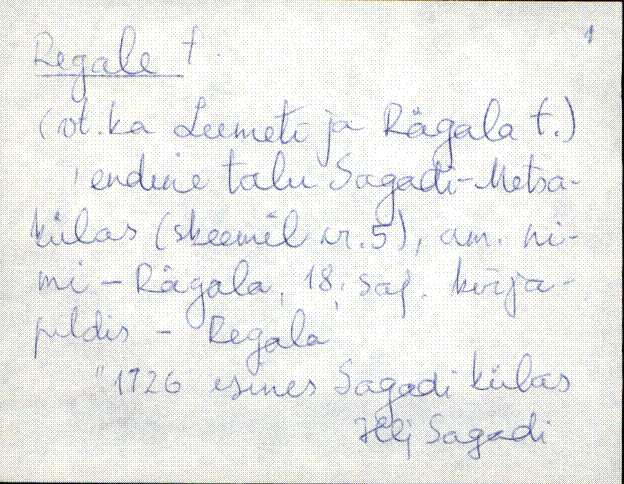 1
Regale t.
(vt. ka Leemeti ja Rägala t.)
endine talu Sagadi-Metsa-
külas (skeemil nr. 5), am. ni-
mi - Rägala, 18. saj. kirja-
pildis - Regala
"1726 esines Sagadi külas
Sagadi